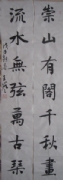 崇山有閣千秋畫
流水無弦萬古琴